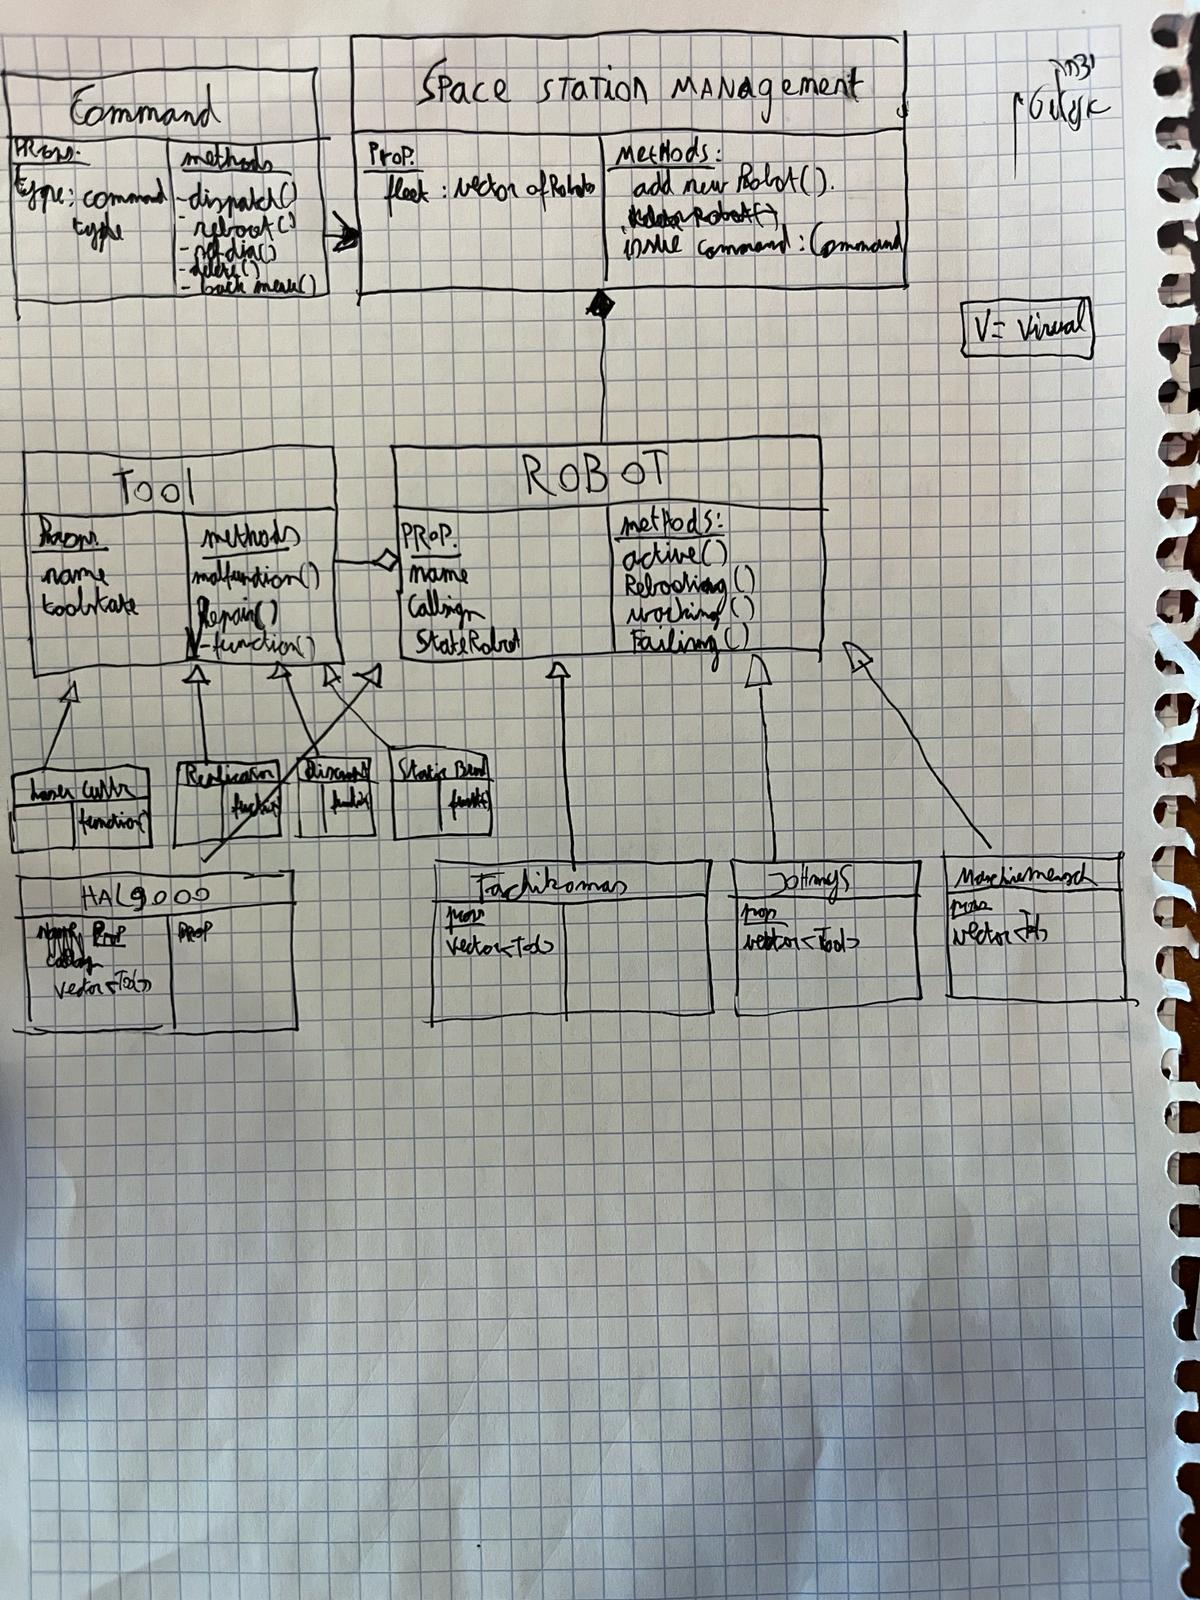 Command
Props:
type: command
type
methods
- dispatch()
- reboot()
- delete()
- back menu()
Space Station Management
Prop.
fleet : vector of Robots
Methods:
add new Robot().
Robot()
issue command : Command
V= Virual
Tool
Props:
name
toolstate
methods
malfunction()
Repair()
V-function()
ROBOT
PROP.
name
Callsign
StateRobot
methods:
active()
Rebooting()
working()
Failing()
Laser Cuttr
function()
Replicator
Static Brad
HAL9000
name, Prop
vector<Tool>
PROP
Tachikomas
prop
vector<Tool>
JOHnny5
prop
vector<Tool>
Maschinemensch
prop
vector<Tool>